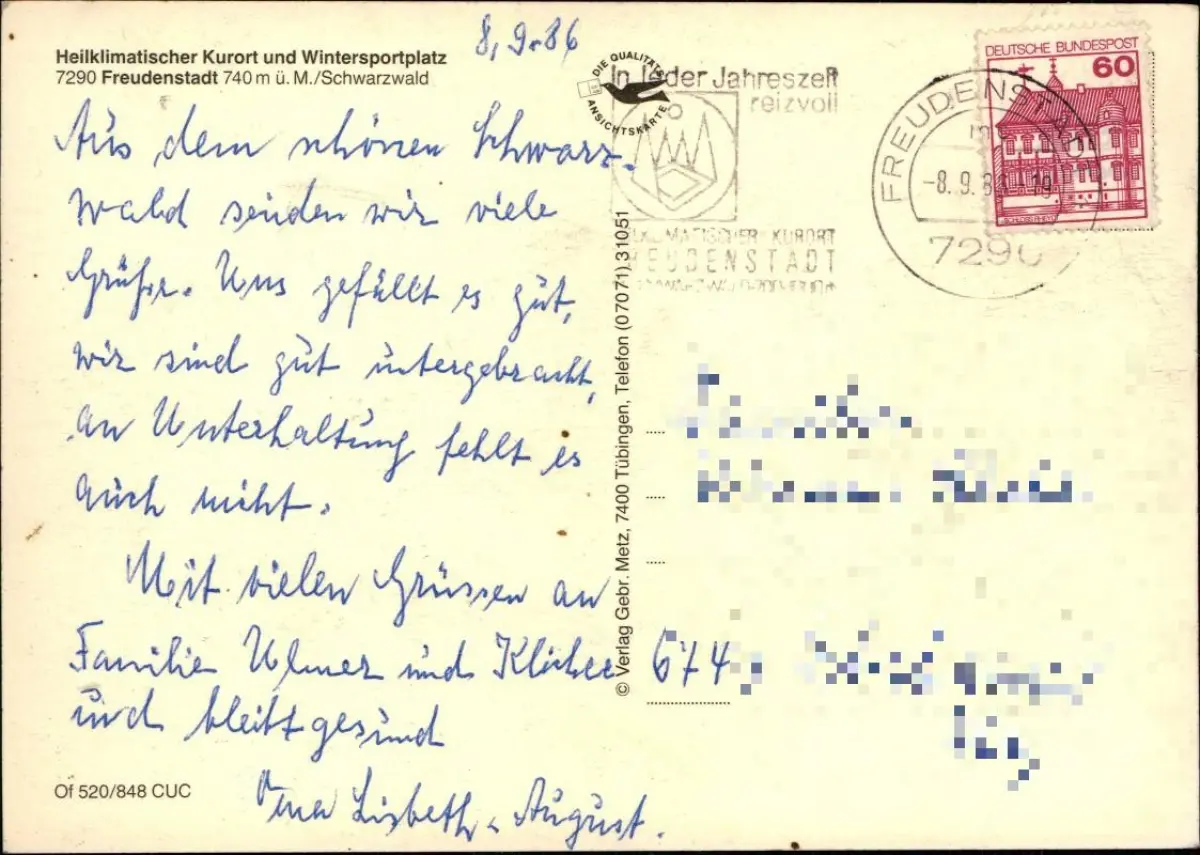 8.9.86
Heilklimatischer Kurort und Wintersportplatz
7290 Freudenstadt 740 m ü. M./Schwarzwald
Aus dem schönen Schwarz-
wald senden wir viele
Grüße. Uns gefällt es gut,
wir sind gut untergebracht,
an Unterhaltung fehlt es
auch nicht.
Mit vielen Grüssen an
Familie Ulmer und
und bleibt gesund
Lisbeth u. August.
Of 520/848 CUC
DIE QUALITÄTS
ANSICHTSKARTE
In jeder Jahreszeit
reizvoll
HEILKLIMATISCHER KURORT
FREUDENSTADT
© Verlag Gebr. Metz, 7400 Tübingen, Telefon (07071) 31051
DEUTSCHE BUNDESPOST
60
FREUDENSTADT
-8.9.86
7290
674